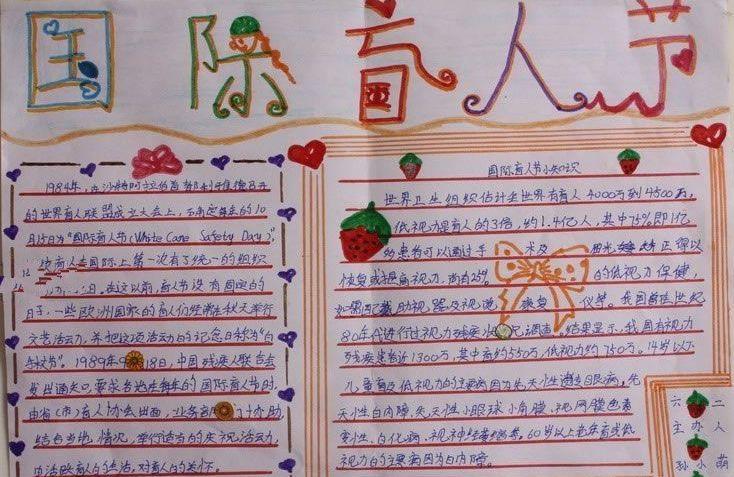 国际盲人节
1984年,在沙特阿拉伯首都利雅得召开
的世界盲人联盟成立大会上,确定每年的10
月15日为“国际盲人节(White Cane Safety Day)”,
盲人在国际上第一次有了统一的组织
在这以前,盲人节没有固定的
日子,一些欧洲国家的盲人们经常在秋天举行
文艺活动,并把这项活动的记念日称为“白
1989年9月18日,中国残疾人联合会
发出通知,要求各地在每年的国际盲人节时,
由省(市)盲人协会出面,业务部门协助,
结合当地情况,举行适当的庆祝活动,
活跃盲人的生活,对盲人的关怀。
国际盲人节小知识
世界卫生组织估计全世界有盲人4000万到4500万,
低视力是盲人的3倍,约1.4亿人,其中75%即1亿
的患者可以通过手术及 得以
恢复或提高视力,尚有25% 的低视力保健,
如果配戴助视器及视觉康复仪等。我国曾在世纪
80年代进行过视力残疾 调查,结果显示,我国有视力
残疾患者近1300万,其中盲约550万,低视力约750万。14岁以下
儿童盲及低视力的主要病因为先天性遗传眼病,先
天性白内障,先天性小眼球小角膜,视网膜色素
变性,白化病,视神经萎缩等。60岁以上老年盲或低
视力的主要病因为白内障。
六 二
主办人
孙小萌